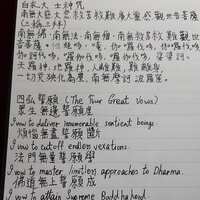 白衣大士神咒
南無大慈大悲救苦救難廣大靈感觀世音菩薩
(三稱三拜)
南無佛,南無法,南無僧,南無救苦救難觀世
音菩薩,怛垤哆,唵,伽囉伐哆,伽囉伐哆,
伽訶伐哆,囉伽伐哆,囉伽伐哆,娑婆訶,
天羅神,地羅神,人離難,難離身,
一切災殃化為塵,南無摩訶般若波羅蜜。
四弘誓願 (The Four Great Vows)
眾生無邊誓願度
I vow to deliver innumerable sentient beings
煩惱無盡誓願斷
I vow to cut off endless vexations.
法門無量誓願學
I vow to master limitless approaches to Dharma.
佛道無上誓願成
I vow to attain Supreme Buddhahood.